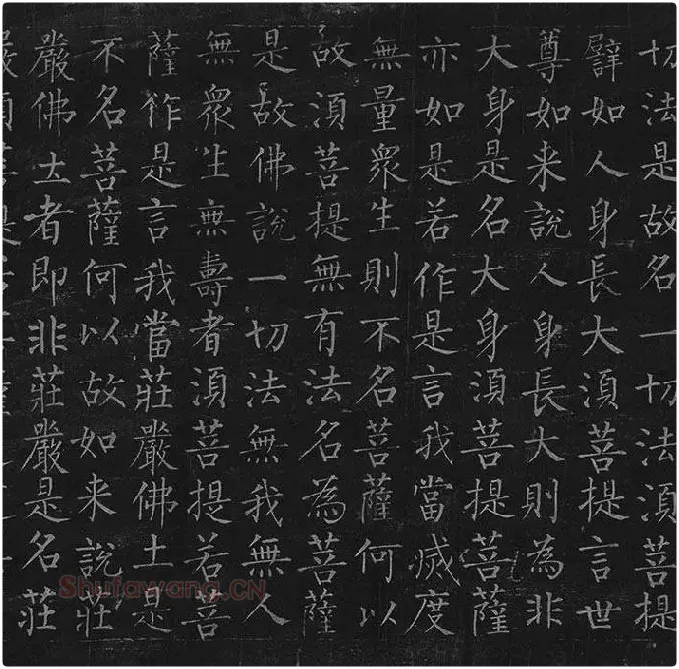 切法是故名一切法須菩提
譬如人身長大須菩提言世
尊如来說人身長大則為非
大身是名大身須菩提菩薩
亦如是若作是言我當滅度
無量衆生則不名菩薩何以
故須菩提無有法名為菩薩
是故佛說一切法無我無人
無衆生無壽者須菩提若菩
薩作是言我當莊嚴佛土是
不名菩薩何以故如来說莊
嚴佛土者即非莊嚴是名莊
Shufawang.CN